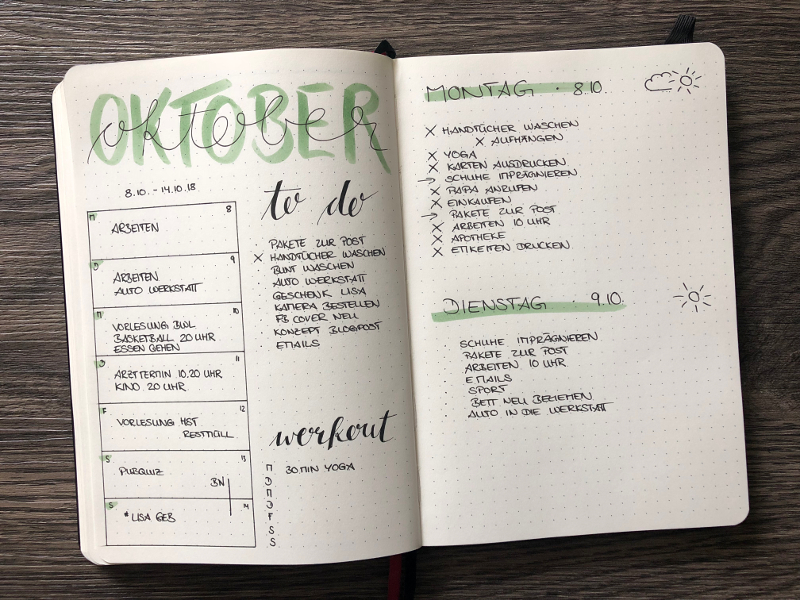 OKTOBER
oktober
8.10. - 14.10.18
M 8
ARBEITEN
D 9
ARBEITEN
AUTO WERKSTATT
M 10
VORLESUNG BWL
BASKETBALL 20 UHR
ESSEN GEHEN
D 11
ARZTTERMIN 10.20 UHR
KINO 20 UHR
F 12
VORLESUNG HST
RESTMÜLL
S 13
PUBQUIZ
BN
S 14
* LISA GEB
to do
PAKETE ZUR POST
X HANDTÜCHER WASCHEN
BUNT WASCHEN
AUTO WERKSTATT
GESCHENK LISA
KAMERA BESTELLEN
FB COVER NEU
KONZEPT BLOGPOST
EMAILS
workout
M 30 MIN YOGA
D
M
D
F
S
S
MONTAG · 8.10.
X HANDTÜCHER WASCHEN
X AUFHÄNGEN
X YOGA
X KARTEN AUSDRUCKEN
→ SCHUHE IMPRÄGNIEREN
X PAPA ANRUFEN
X EINKAUFEN
→ PAKETE ZUR POST
X ARBEITEN 10 UHR
X APOTHEKE
X ETIKETTEN DRUCKEN
DIENSTAG · 9.10.
SCHUHE IMPRÄGNIEREN
PAKETE ZUR POST
ARBEITEN 10 UHR
EMAILS
SPORT
BETT NEU BEZIEHEN
AUTO IN DIE WERKSTATT